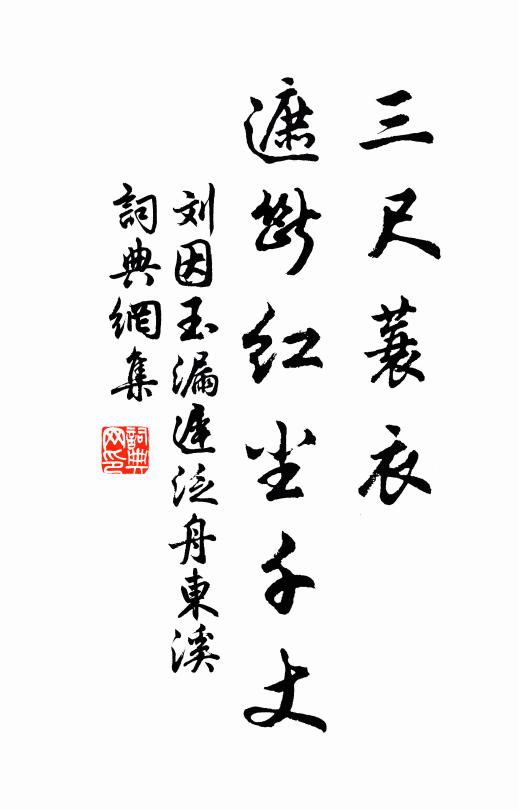 三尺蓑衣
遮斷红尘千丈
刘因玉漏遲泛舟東溪
詞典網集
詞典網印